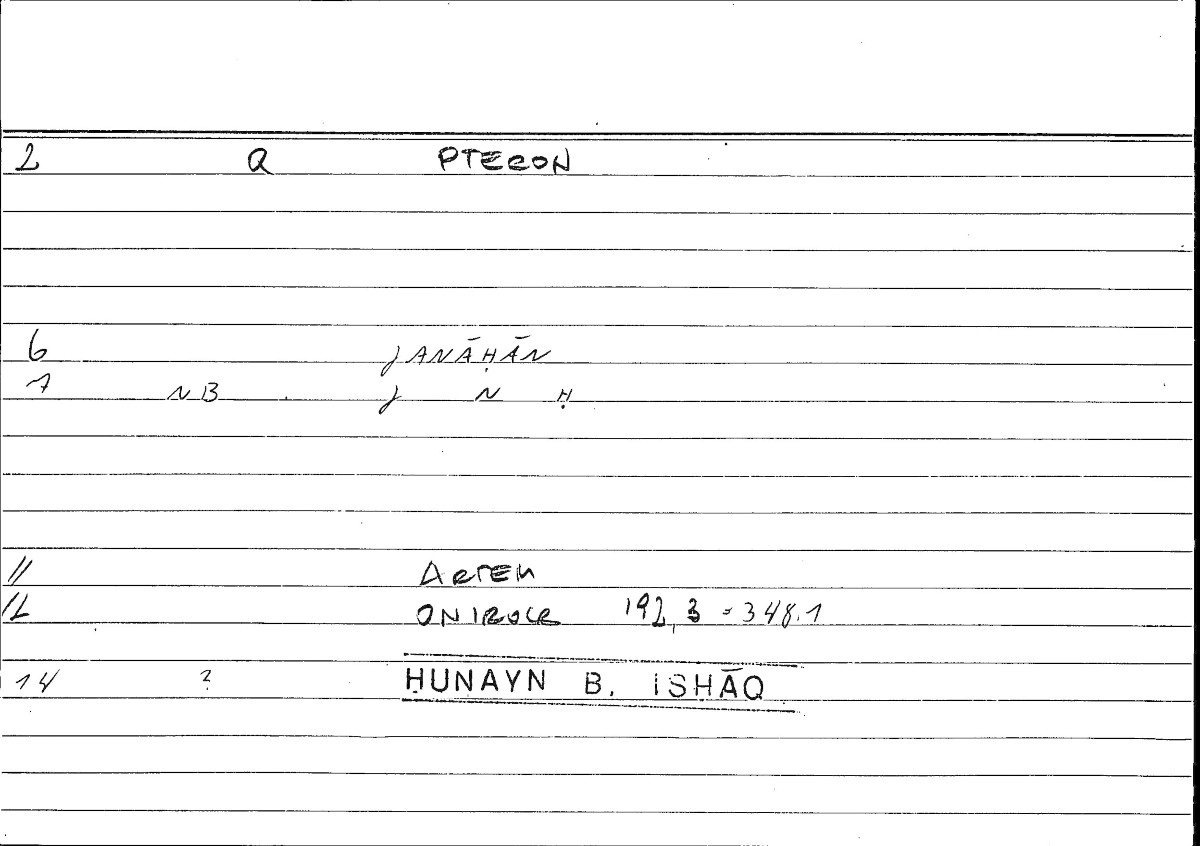 2 Q PTERON
6 JANĀḤĀN
7 NB J N Ḥ
11 ARTEM
12 ONIROCR 192, 3 = 348.1
14 ? ḤUNAYN B. ISḤĀQ